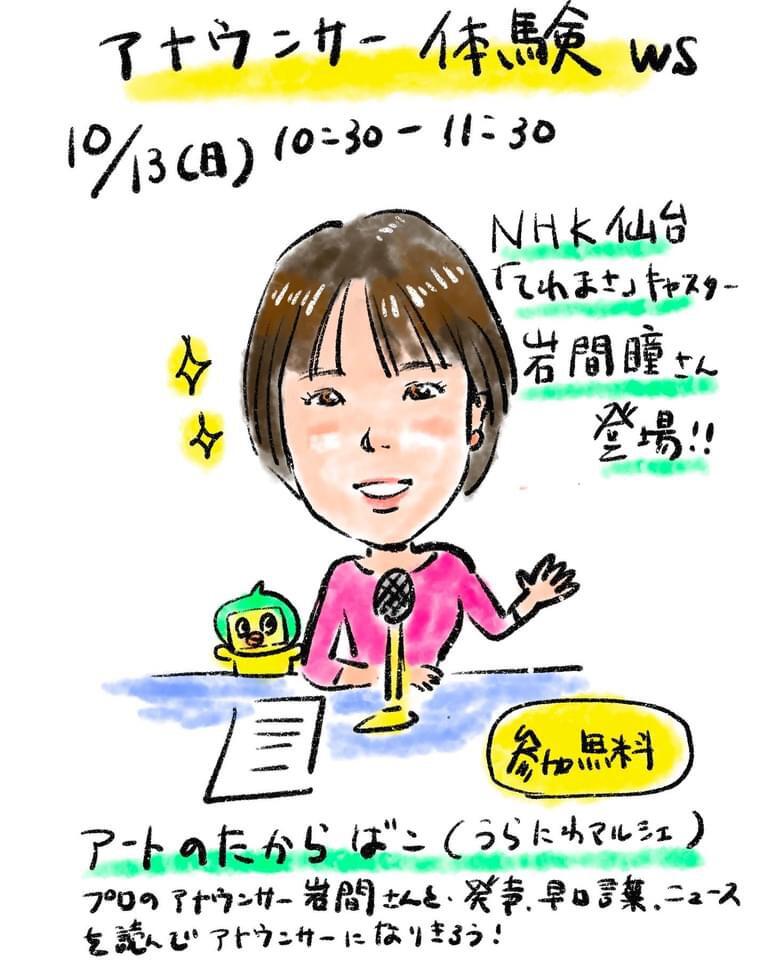 アナウンサー体験 WS
10/13(日) 10:30-11:30
NHK仙台
「てれまさ」キャスター
岩間瞳さん
登場!!
参加無料
アートのたからばこ(うらにわマルシェ)
プロのアナウンサー岩間さんと、発声、早口言葉、ニュース
を読んでアナウンサーになりきろう!